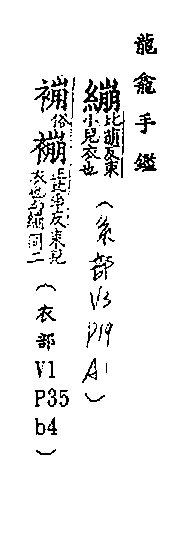 龍龕手鑑
繃比萠反束小兒衣也（糸部V3P19A1）
𥚝俗繃正北爭反束兒衣也与繃同二（衣部V1P35b4）